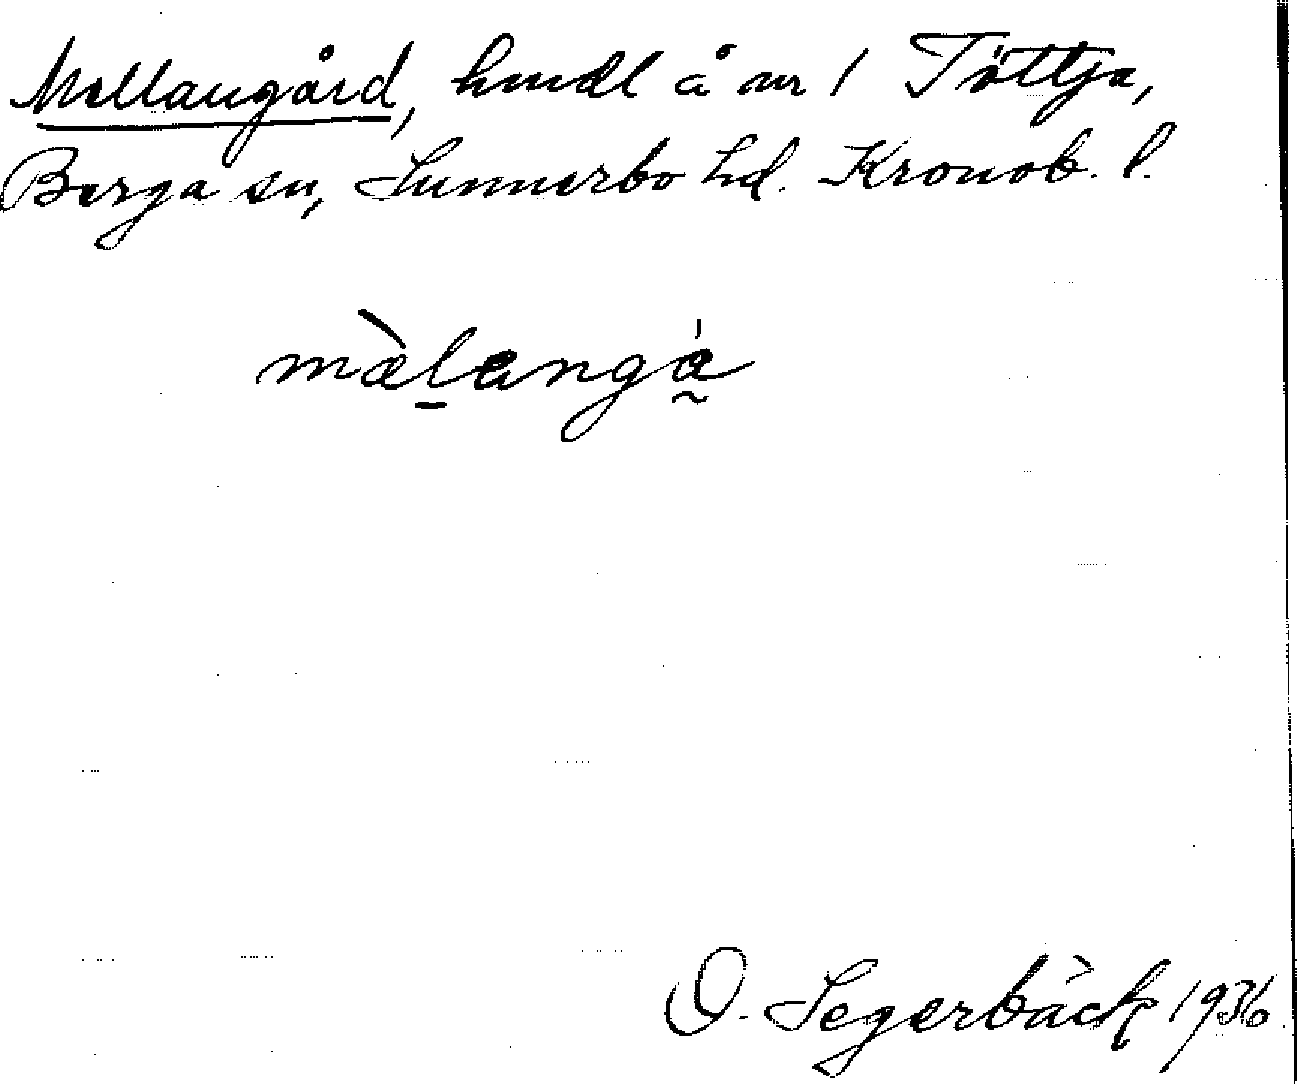 Mellangård, hmdl å nr 1 Töttja,
Berga sn, Sunnerbo hd. Kronob. l.
mælangå
O. Segerbäck 1936